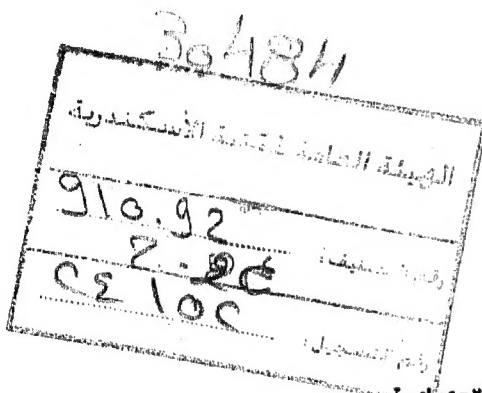 30484
الهيئة العامة لمكتبة الأسكندرية
910.92
رقم التصنيف:
٢٤١٥٢
رقم التسجيل: